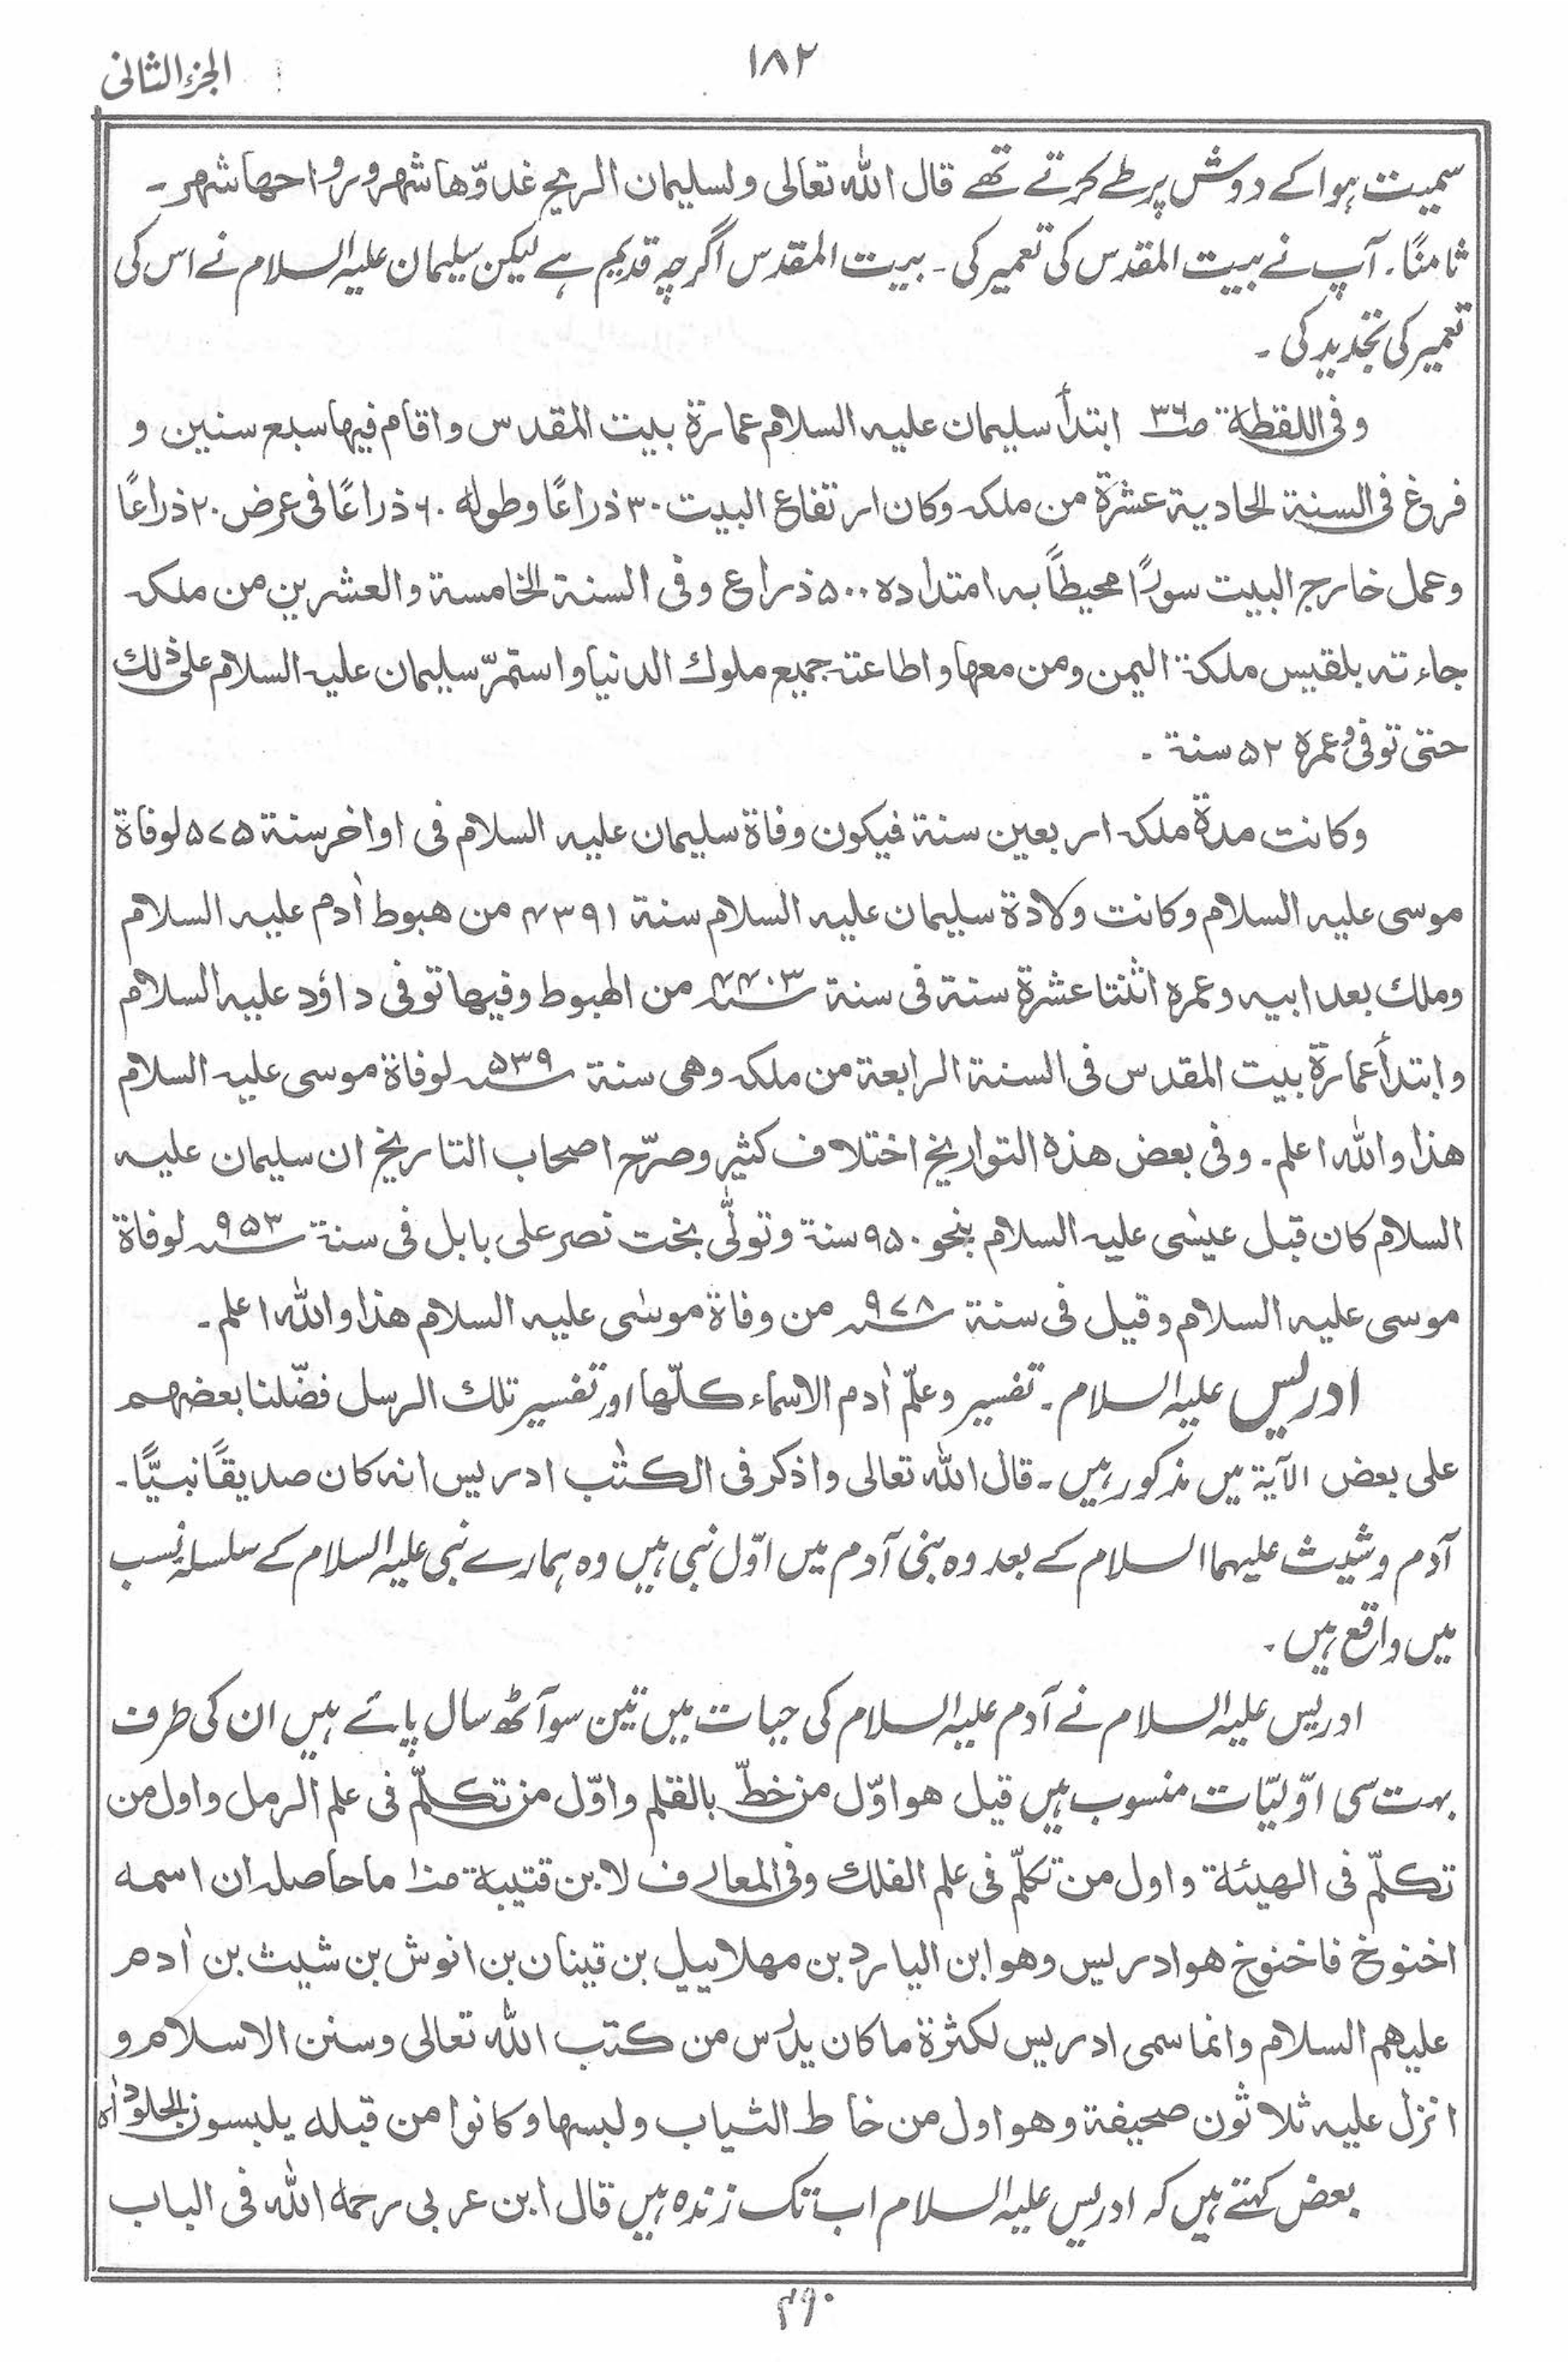 ۱۸۲
الجزء الثانی
سمیت ہوا کے دوش پر طے کرتے تھے قال اللہ تعالی ولسلیمان الریح غدوّھا شھر ورواحھا شھر۔
ثامنًا۔ آپ نے بیت المقدس کی تعمیر کی۔ بیت المقدس اگرچہ قدیم ہے لیکن سلیمان علیہ السلام نے اس کی
تعمیر کی تجدید کی۔
وفی اللقطۃ ص۳۶ ابتدأ سلیمان علیہ السلام عمارۃ بیت المقدس واقام فیھا سبع سنین و
فرغ فی السنۃ الحادیۃ عشرۃ من ملکہ وکان ارتفاع البیت ۳۰ ذراعًا وطولہ ۶۰ ذراعًا فی عرض ۲۰ ذراعًا
وعمل خارج البیت سورًا محیطًا بہ امتدادہ ۵۰۰ ذراع وفی السنۃ الخامسۃ والعشرین من ملکہ
جاءتہ بلقیس ملکۃ الیمن ومن معھا واطاعتہ جمیع ملوک الدنیا واستمرّ سلیمان علیہ السلام علی ذلک
حتی توفی وعمرہ ۵۲ سنۃ۔
وکانت مدۃ ملکہ اربعین سنۃ فیکون وفاۃ سلیمان علیہ السلام فی اواخر سنۃ ۵۷۵ لوفاۃ
موسی علیہ السلام وکانت ولادۃ سلیمان علیہ السلام سنۃ ۴۳۹۱ من ھبوط اٰدم علیہ السلام
وملک بعد ابیہ وعمرہ اثنتا عشرۃ سنۃ فی سنۃ ۴۴۰۳ من الھبوط وفیھا توفی داؤد علیہ السلام
وابتدأ عمارۃ بیت المقدس فی السنۃ الرابعۃ من ملکہ وھی سنۃ ۵۳۹ لوفاۃ موسی علیہ السلام
ھذا واللہ اعلم۔ وفی بعض ھذہ التواریخ اختلاف کثیر وصرّح اصحاب التاریخ ان سلیمان علیہ
السلام کان قبل عیسٰی علیہ السلام بنحو ۹۵۰ سنۃ وتولّٰی بخت نصر علی بابل فی سنۃ ۹۵۳ لوفاۃ
موسی علیہ السلام وقیل فی سنۃ ۹۷۸ من وفاۃ موسٰی علیہ السلام ھذا واللہ اعلم۔
ادریس علیہ السلام۔ تفسیر وعلّم اٰدم الاسماء کلّھا اور تفسیر تلک الرسل فضّلنا بعضھم
علی بعض الآیۃ میں مذکور ہیں۔ قال اللہ تعالی واذکر فی الکتٰب ادریس انہ کان صدیقًا نبیًّا۔
آدم وشیث علیہما السلام کے بعد وہ بنی آدم میں اوّل نبی ہیں وہ ہمارے نبی علیہ السلام کے سلسلۂ نسب
میں واقع ہیں۔
ادریس علیہ السلام نے آدم علیہ السلام کی حیات میں تین سو آٹھ سال پائے ہیں ان کی طرف
بہت سی اوّلیّات منسوب ہیں قیل ھو اوّل من خطّ بالقلم واوّل من تکلّم فی علم الرمل واول من
تکلّم فی الھیئۃ واول من تکلّم فی علم الفلک وفی المعارف لابن قتیبۃ ما حاصلہ ان اسمہ
اخنوخ فاخنوخ ھو ادریس وھو ابن الیارد بن مھلاییل بن قینان بن انوش بن شیث بن اٰدم
علیھم السلام وانما سمی ادریس لکثرۃ ما کان یدرس من کتب اللہ تعالی وسنن الاسلام و
انزل علیہ ثلاثون صحیفۃ وھو اول من خاط الثیاب ولبسھا وکانوا من قبلہ یلبسون الجلود اھ
بعض کہتے ہیں کہ ادریس علیہ السلام اب تک زندہ ہیں قال ابن عربی رحمہ اللہ فی الباب
۴۹۰